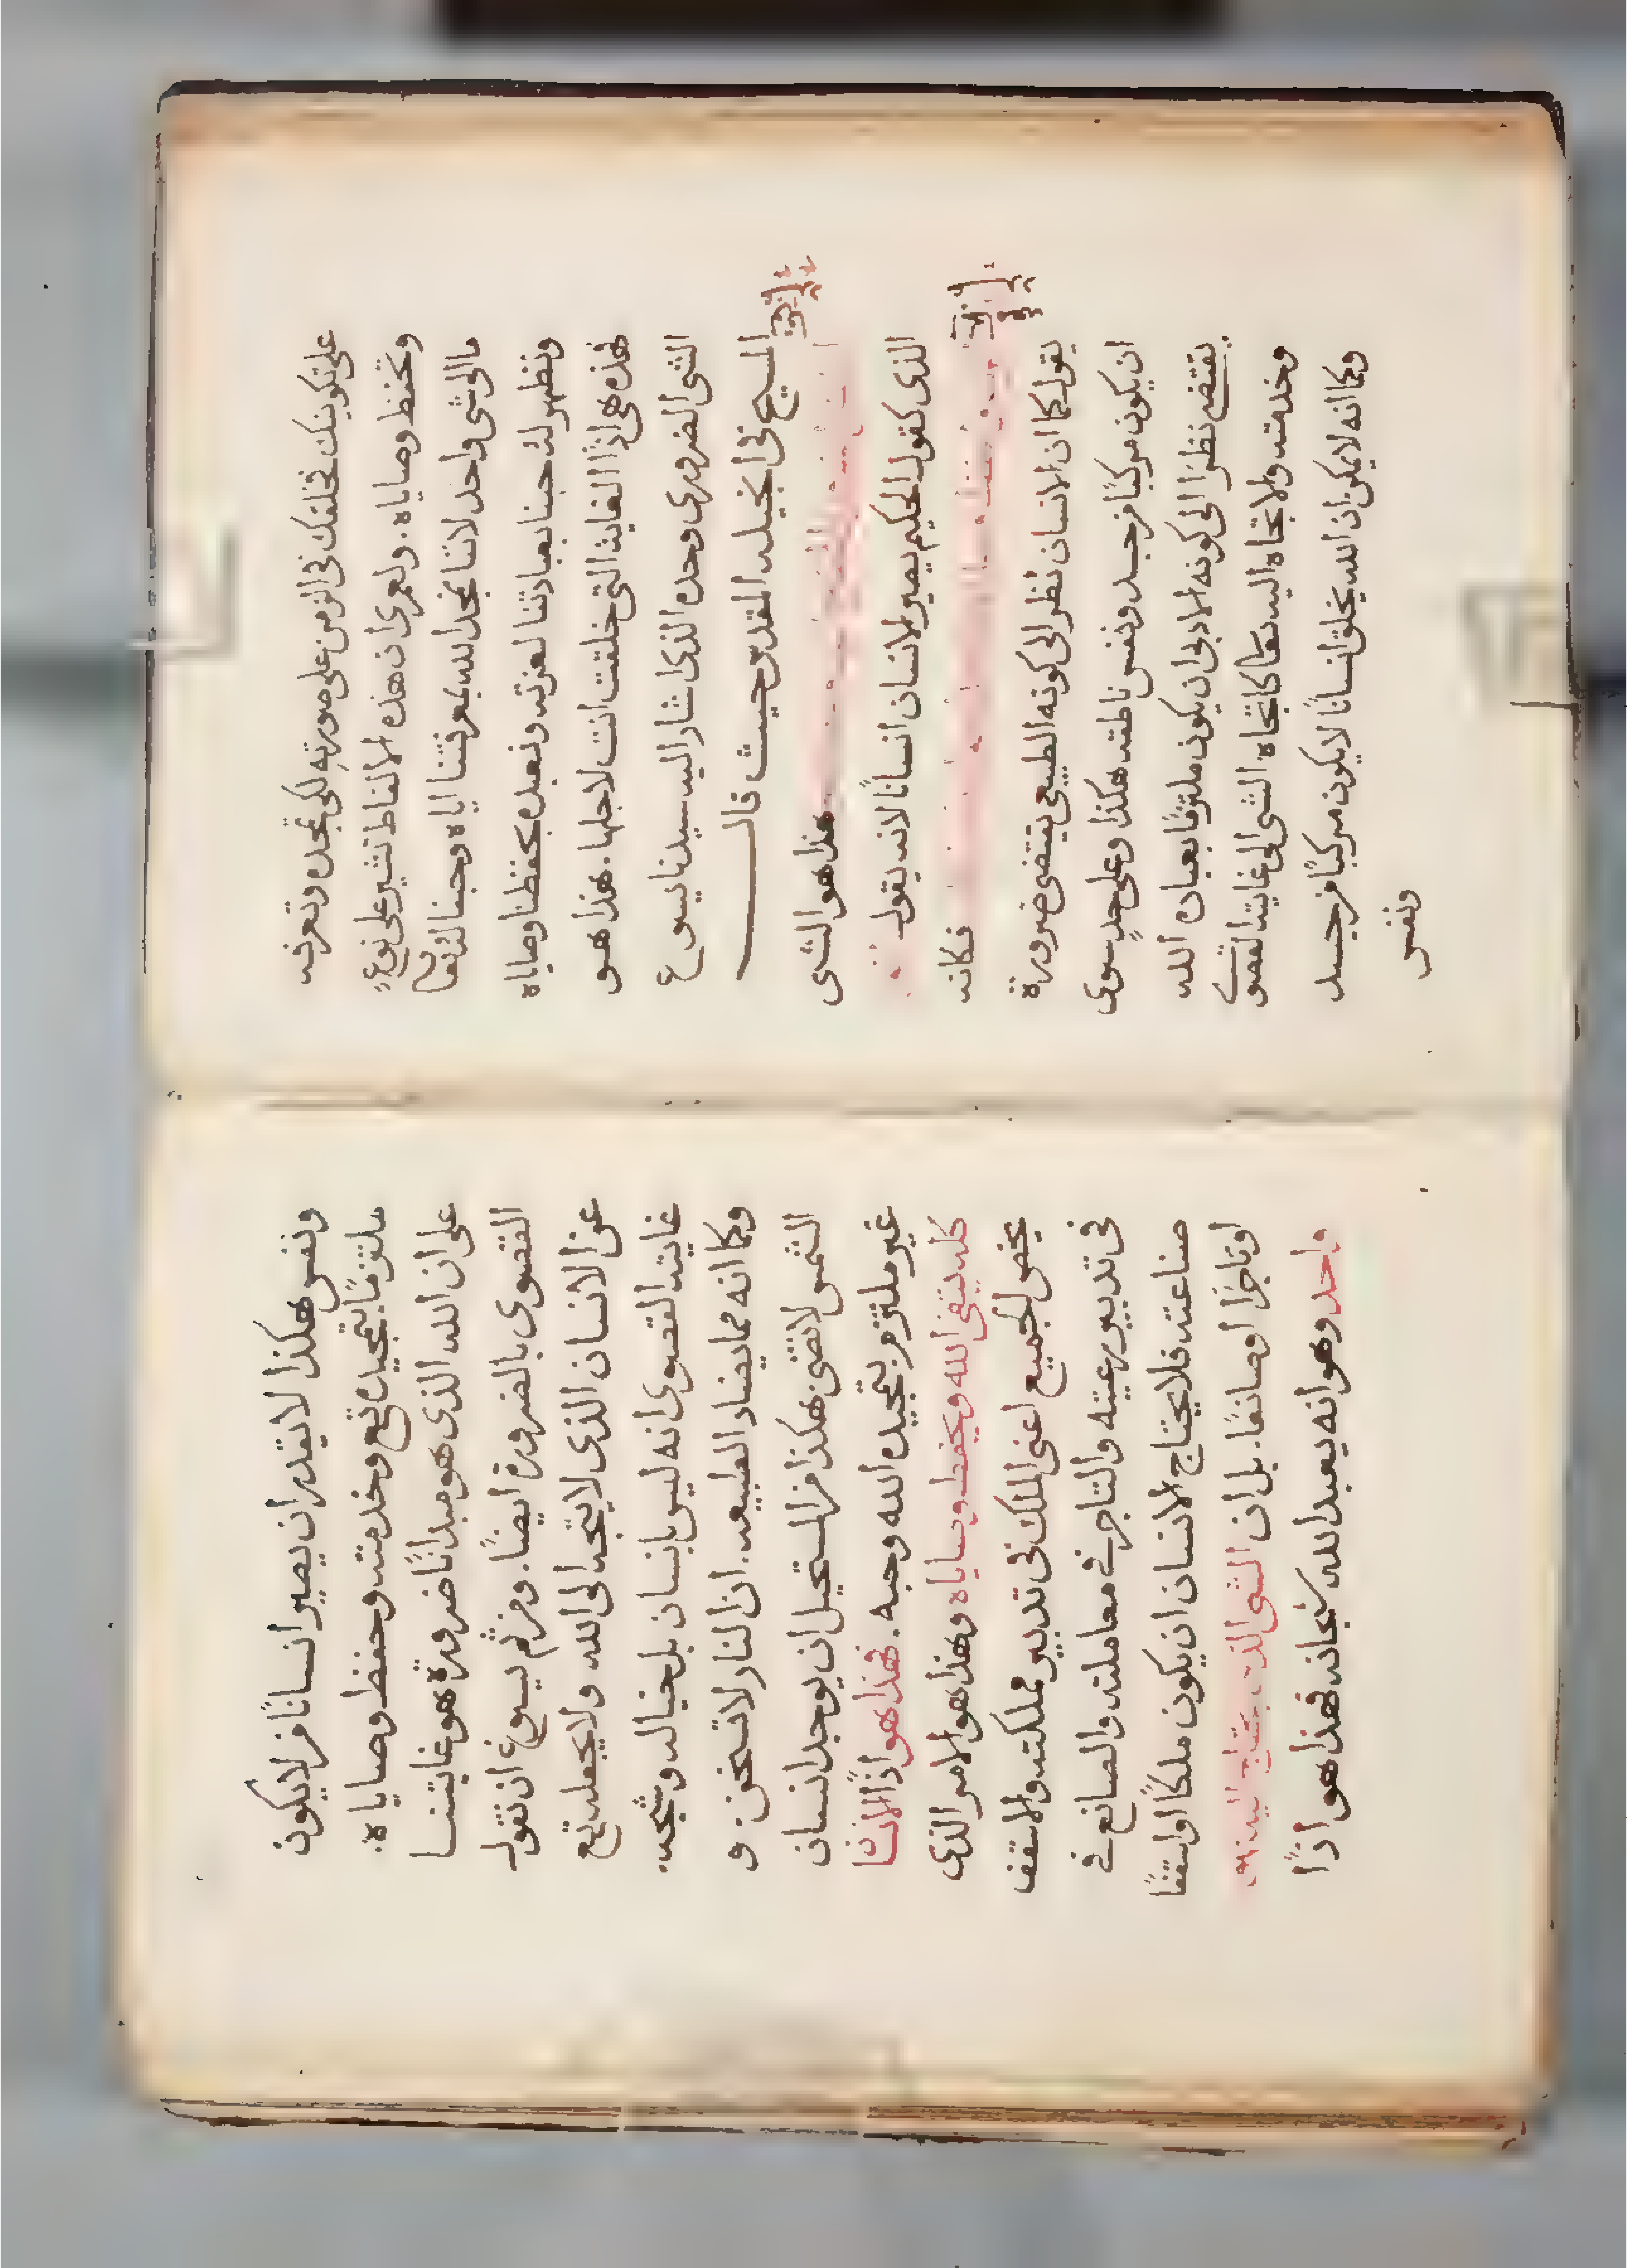 على تكوينك فخلقك فى الزمن على صورته لكى تمجده وتعرفه
وتحفظ وصاياه. ولعمرى ان هذه الالفاظ تشير على نوعٍ
ما الى شى واحد لاننا نمجد الله بمعرفتنا اياه وحبنا له تعا
ونظهر له حبنا بعبادتنا لعزته ونعبده بحفظنا وصاياه
فهذه هى اذًا الغايه التى خلقت انت لاجلها. هذا هو
الشى الضرورى وحده الذى اشار اليه سيدنا يسوع
المسيح فى انجيله المقدس حيث قال
هذا هو الشى
الذى كقول الحكيم يصير الانسان انسانًا لانه يقول
فكانه
يقول كما ان الانسان نظرا الى كونه الطبيعى يقتضى ضرورة
ان يكون مركبًا من جسد ونفس ناطقه هكذا وعلى حدٍ سوى
يقتضى نظرًا الى كونه الادبى ان يكون ملتزمًا بعبادة الله
وخدمته والاتجاه اليه تعا كاتجاه الشى الى غايته القصوى
وكما انه لا يمكن ان الله يخلق انسانًا لا يكون مركبًا من جسد
ونفس
ونفس هكذا لا يقدر ان يصير انسانًا من لا يكون
ملتزمًا بتمجيده تع وخدمته وحفظ وصاياه.
على ان الله الذى هو مبدانا ضرورة هو غايتنا
القصوى بالضرورة ايضًا. ومن ثم يسوغ ان نقول
عن الانسان الذى لا يتجه الى الله ولا يجعله تع
غايته القصوى انه ليس بانسان بل خياله وشبحه.
وكما انه مما يضاد الطبيعه. ان النار لا تسخن و
الشمس لا تضى هكذا من المستحيل ان يوجد انسان
غير ملتزم بتمجيد الله وحبه. فهذا هو اذًا الانسان
كله يتقى الله ويحفظ وصاياه وهذا هو الامر الذى
يخص الجميع اعنى الملك فى تدبير مملكته والاسقف
فى تدبير رعيته والتاجر فى معاملته والصانع فى
صناعته فلا يحتاج الانسان ان يكون ملكًا او اسقفًا
او تاجرًا او صانعًا. بل ان الشى الذى يحتاج اليه
واحد وهو انه يعبد الله سبحانه فهذا هو اذًا